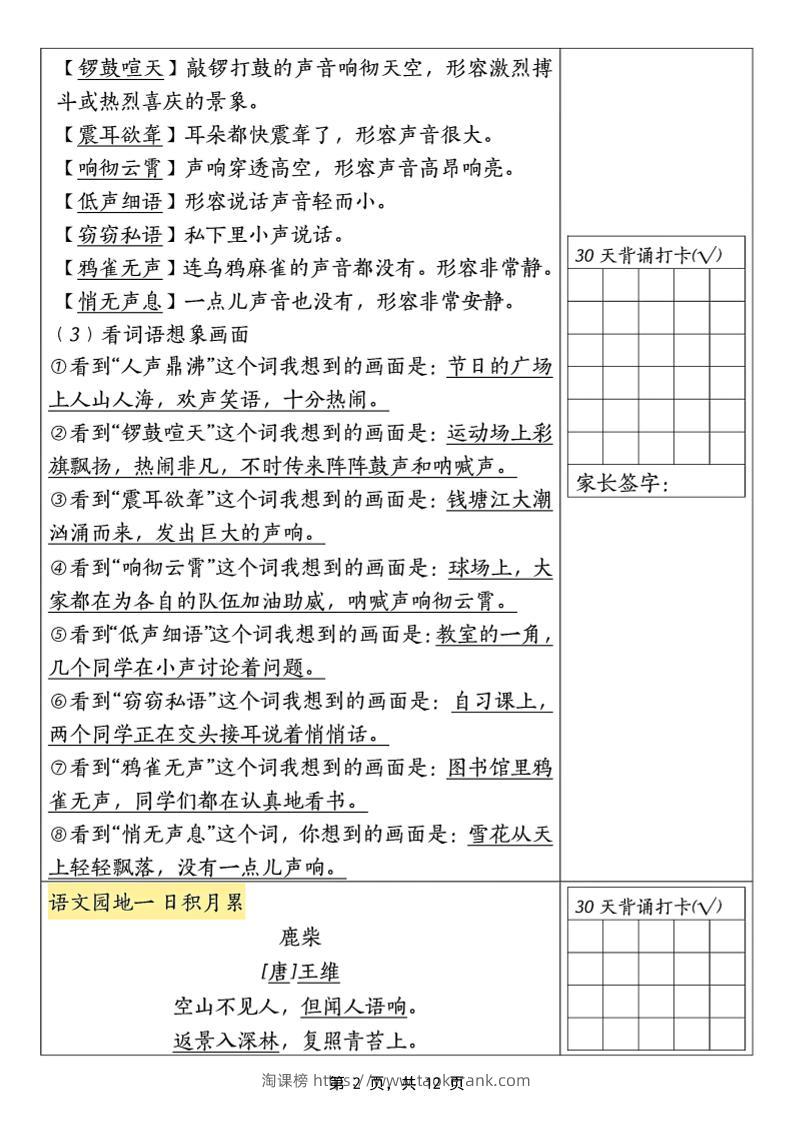 【锣鼓喧天】敲锣打鼓的声音响彻天空，形容激烈搏
斗或热烈喜庆的景象。
【震耳欲聋】耳朵都快震聋了，形容声音很大。
【响彻云霄】声响穿透高空，形容声音高昂响亮。
【低声细语】形容说话声音轻而小。
【窃窃私语】私下里小声说话。
【鸦雀无声】连乌鸦麻雀的声音都没有。形容非常静。
【悄无声息】一点儿声音也没有，形容非常安静。
（3）看词语想象画面
①看到“人声鼎沸”这个词我想到的画面是：节日的广场
上人山人海，欢声笑语，十分热闹。
②看到“锣鼓喧天”这个词我想到的画面是：运动场上彩
旗飘扬，热闹非凡，不时传来阵阵鼓声和呐喊声。
③看到“震耳欲聋”这个词我想到的画面是：钱塘江大潮
汹涌而来，发出巨大的声响。
④看到“响彻云霄”这个词我想到的画面是：球场上，大
家都在为各自的队伍加油助威，呐喊声响彻云霄。
⑤看到“低声细语”这个词我想到的画面是：教室的一角，
几个同学在小声讨论着问题。
⑥看到“窃窃私语”这个词我想到的画面是：自习课上，
两个同学正在交头接耳说着悄悄话。
⑦看到“鸦雀无声”这个词我想到的画面是：图书馆里鸦
雀无声，同学们都在认真地看书。
⑧看到“悄无声息”这个词，你想到的画面是：雪花从天
上轻轻飘落，没有一点儿声响。
30 天背诵打卡(√)
家长签字：
语文园地一 日积月累
鹿柴
[唐]王维
空山不见人，但闻人语响。
返景入深林，复照青苔上。
30 天背诵打卡(√)
淘课榜 https://www.taokerank.com
第 2 页，共 12 页